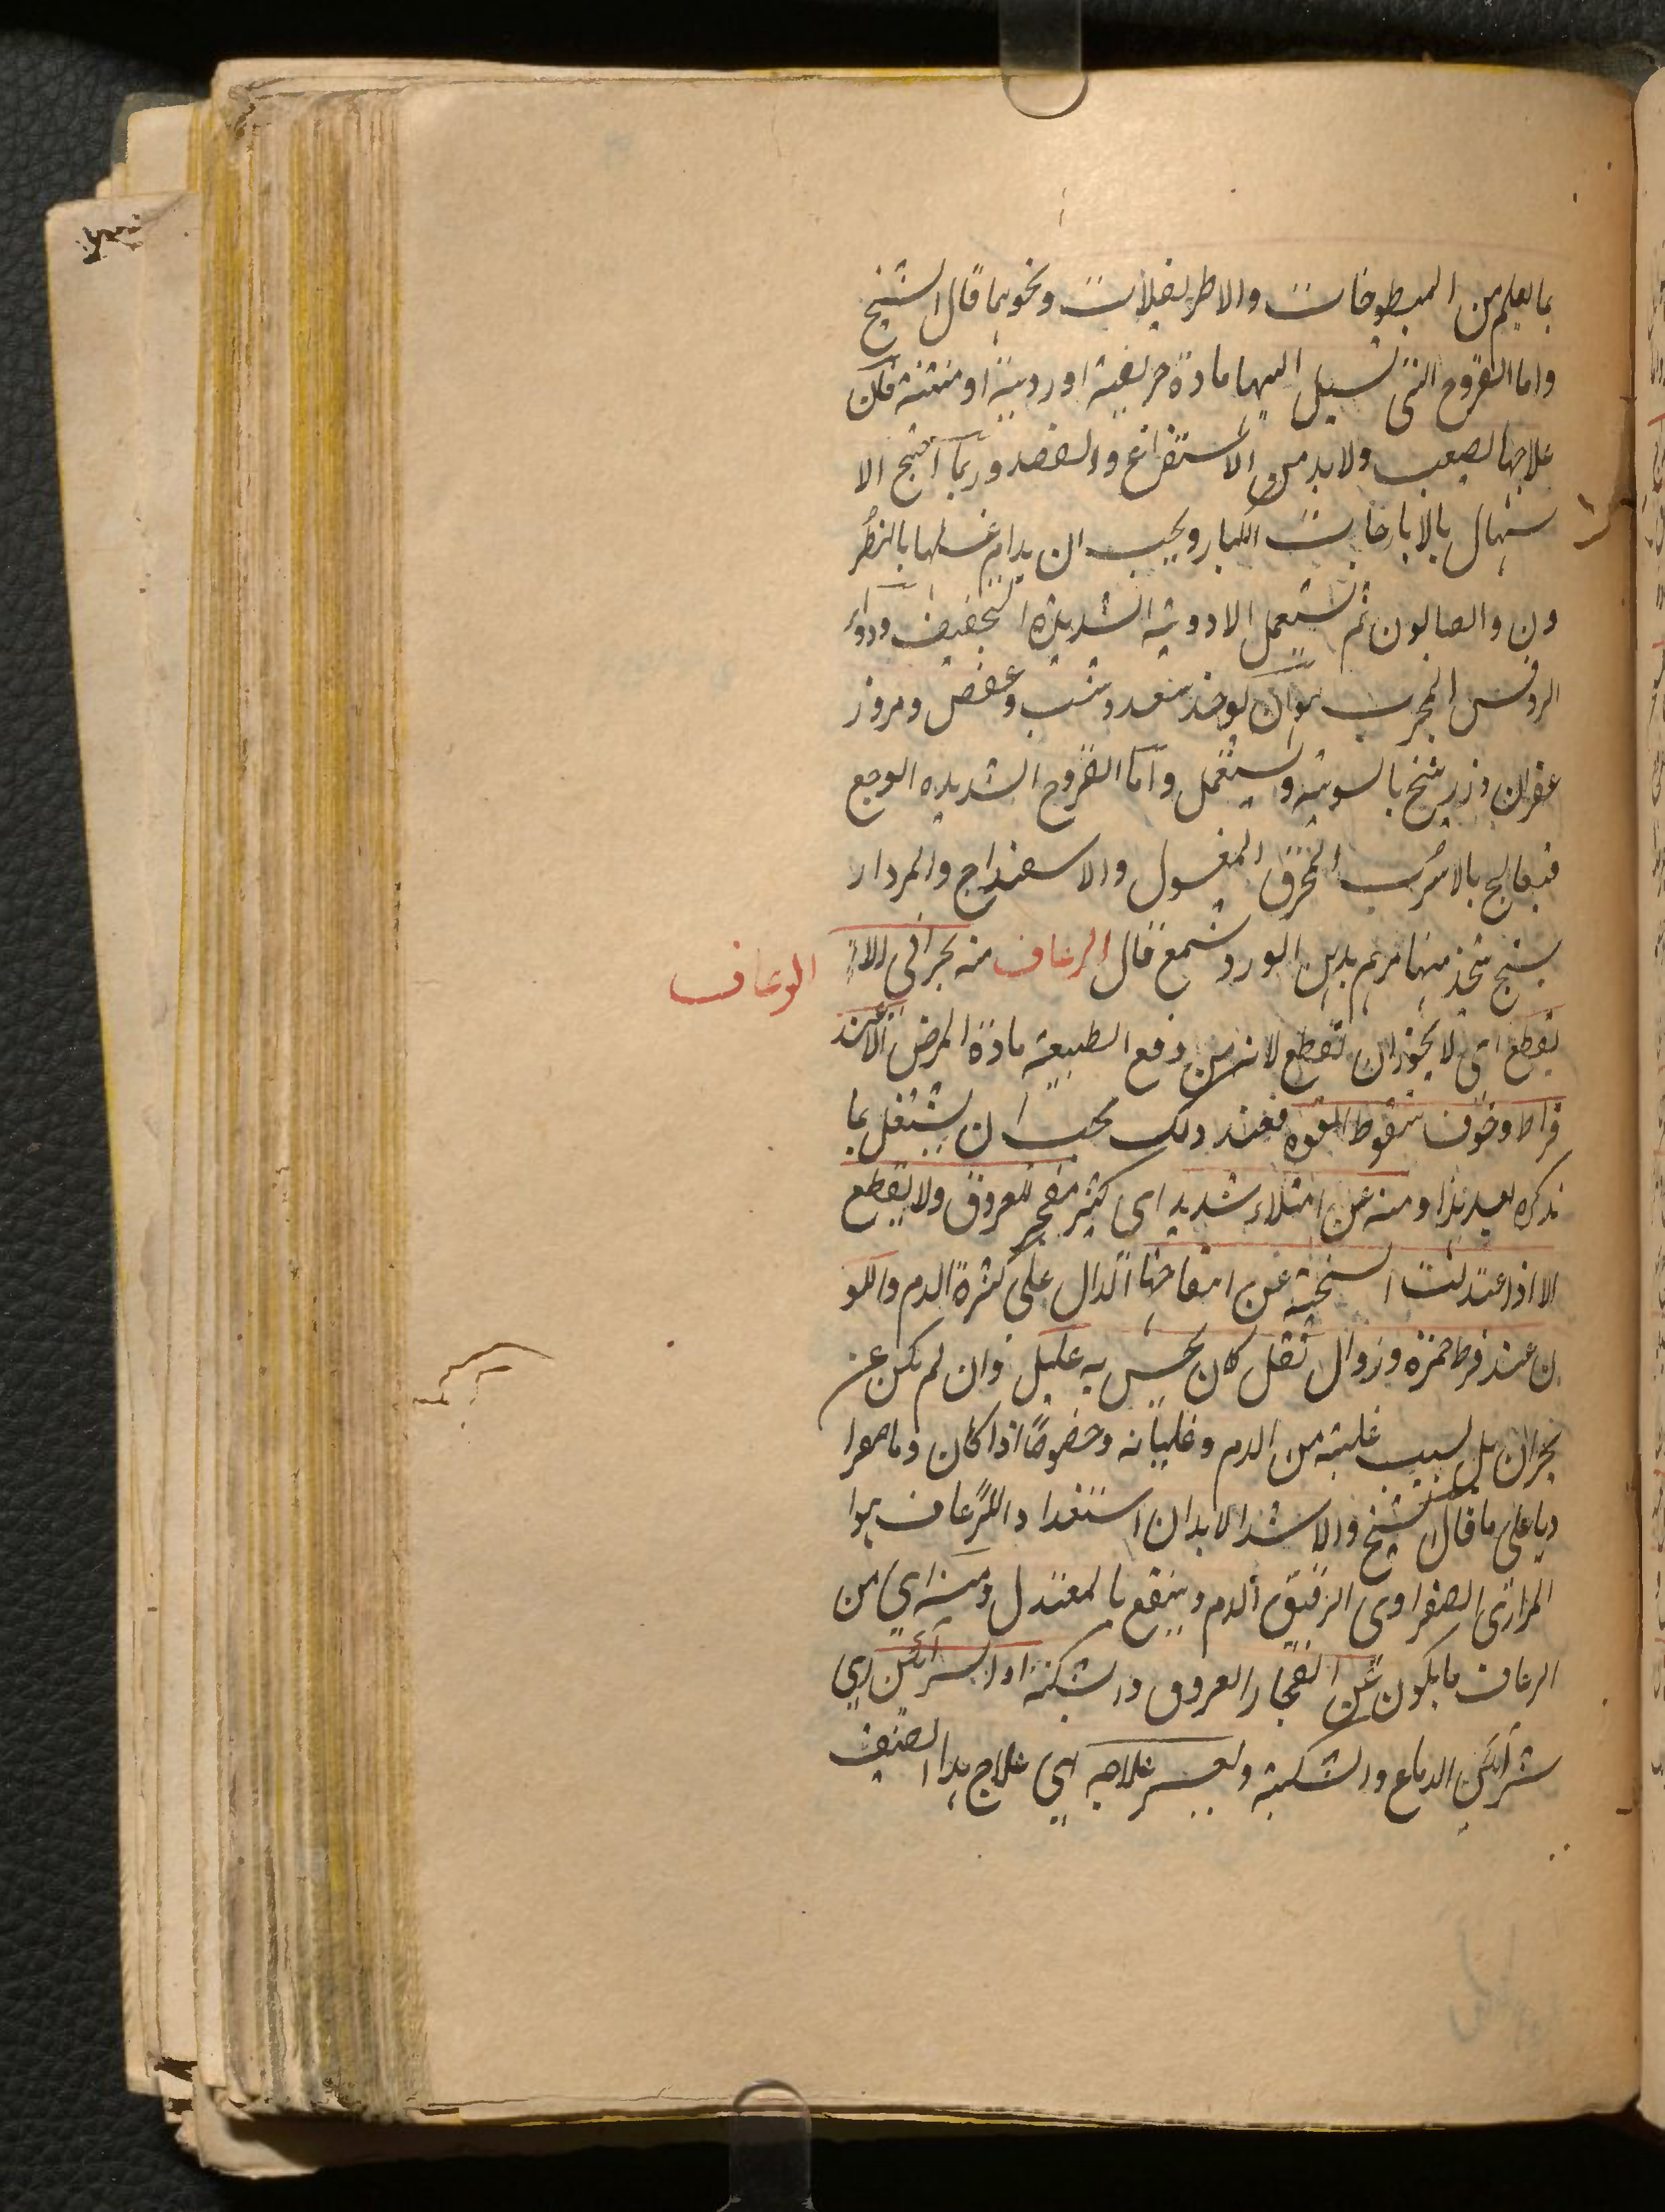 بما يعلم من المبطوخات والاطريفلات ونحوهما قال الشيخ
واما القروح التى تسيل اليها مادة حريفية اوردية او منتنة فكان
علاجها لصعب ولا بد من الاستفراغ والفصد وربما احتيج الا
سهال بالايارجات الكبار ويجب ان يدام غسلها بالنطر
ون والصابون ثم تستعمل الادوية الشديدة التجفيف ودواء
الروفس المجرب هو ان يوخذ سعد وشب وعفص ومر وز
عفران وزرنيخ بالسوية ويستعمل واما القروح الشديده الوجع
فيعالج بالاسرب المحرق المغسول والاسفيداج والمردار
سنج يتخذ منها مرهم بدهن الورد وشمع قال الرعاف منه بحرانى لا
الرعاف
يقطع اى لا يجوز ان تقطع لانه من دفع الطبيعة مادة المرض الا عند
فراط وخوف سقوط القوه فعند ذلك يجب ان يشتغل بما
نذكره بعيد هذا ومنه عن امتلاء شديد اى كثير مفجر للعروق ولا يقطع
الا اذا اعتدلت السخنة عن انتفاخها الدال على كثرة الدم واللو
ن عند فرط حمرة وزوال ثقل كان يحس به عليل وان لم يكن عن
بحران بل بسبب غلبة من الدم وغليانه وخصوصًا اذا كان دما صفرا
ديا على ما قال الشيخ والا شد الابدان استعدادا للرعاف هوا
المرارى الصفراوى الرقيق الدم وينتفع بالمعتدل ومنه اي من
الرعاف ما يكون عن انفجار العروق والشبكة او الشرائين اي
شرائين الدماغ والشبكة ويعسر علاجه اي علاج هذا الصنف